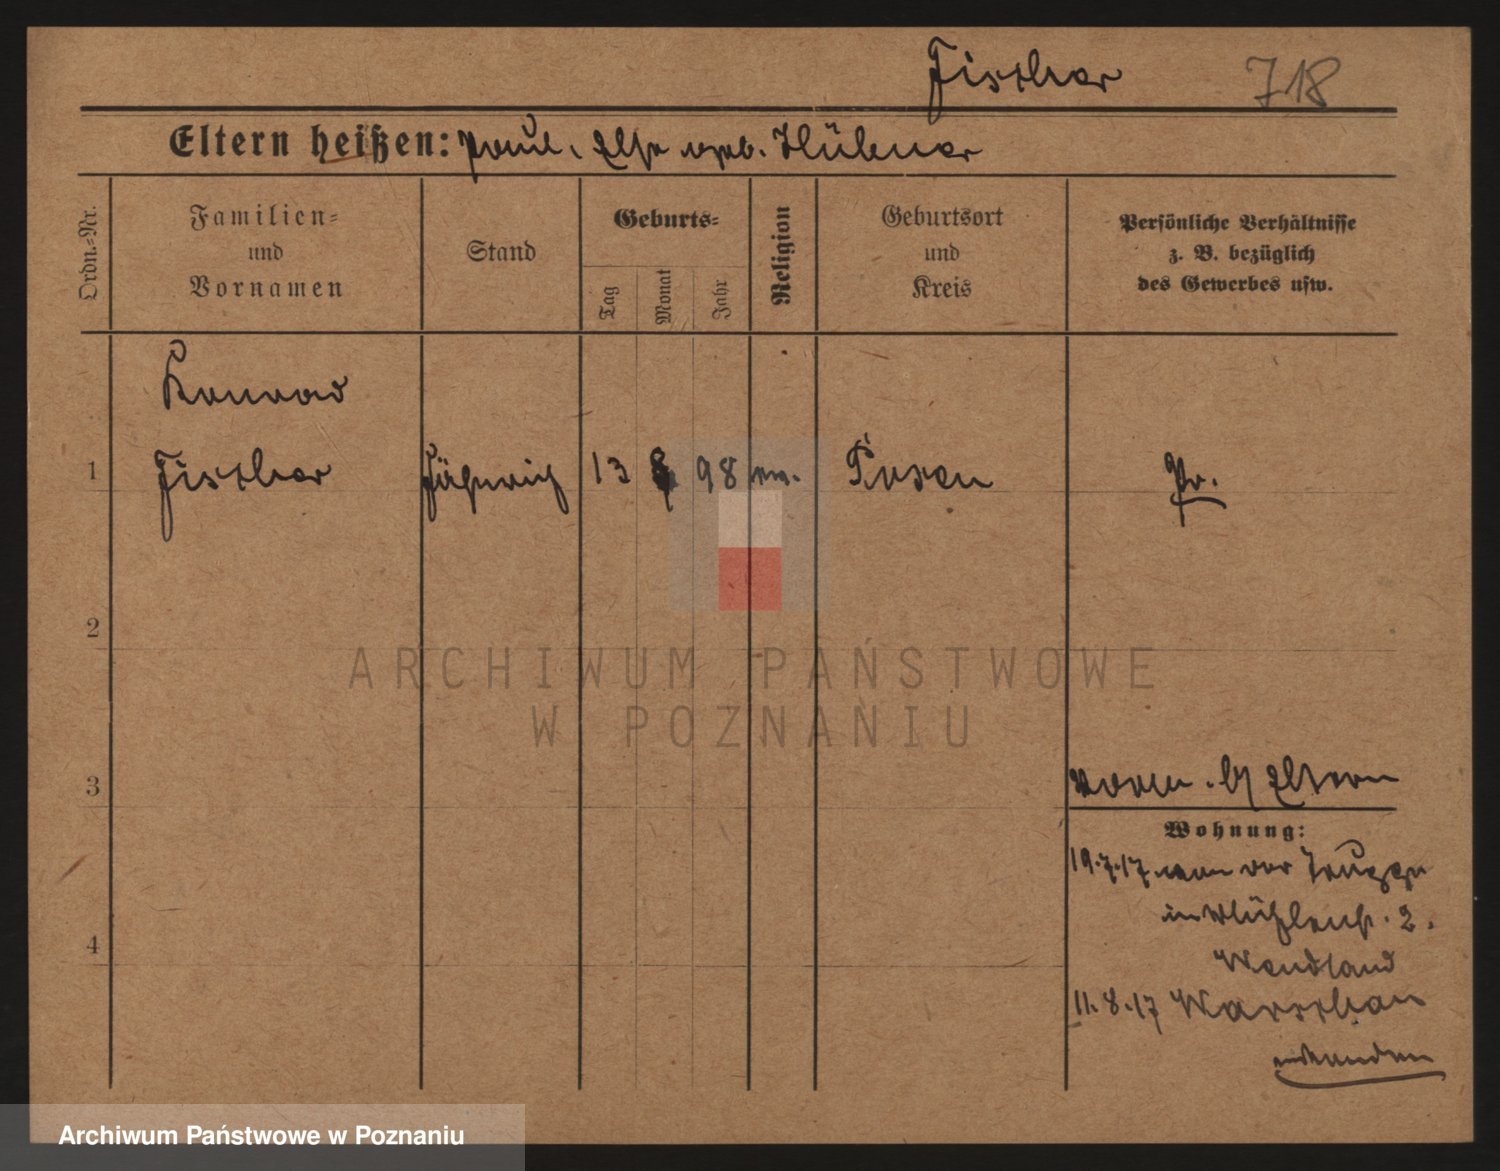 Fischer 718
Eltern heißen: Paul, Else geb. Hübner
Ordn.-Nr.
Familien-
und
Vornamen
Stand
Geburts-
Tag
Monat
Jahr
Religion
Geburtsort
und
Kreis
Persönliche Verhältnisse
z. B. bezüglich
des Gewerbes usw.
Konrad
1 Fischer Fähnrich 13 8 98 Posen Pr.
2
3
4
ARCHIWUM PAŃSTWOWE
W POZNANIU
b/ Eltern
Wohnung:
19.7.17. von der Truppe
in 2.
Wendland
11.8.17 Warschau
Archiwum Państwowe w Poznaniu